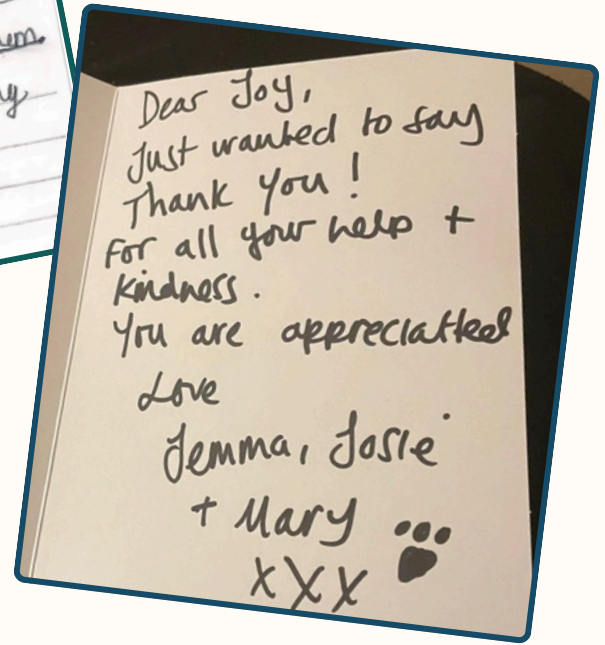 Dear Joy,
Just wanted to say
Thank you !
For all your help +
kindness.
You are appreciatted
Love
Jemma, Josie
+ Mary
xxx